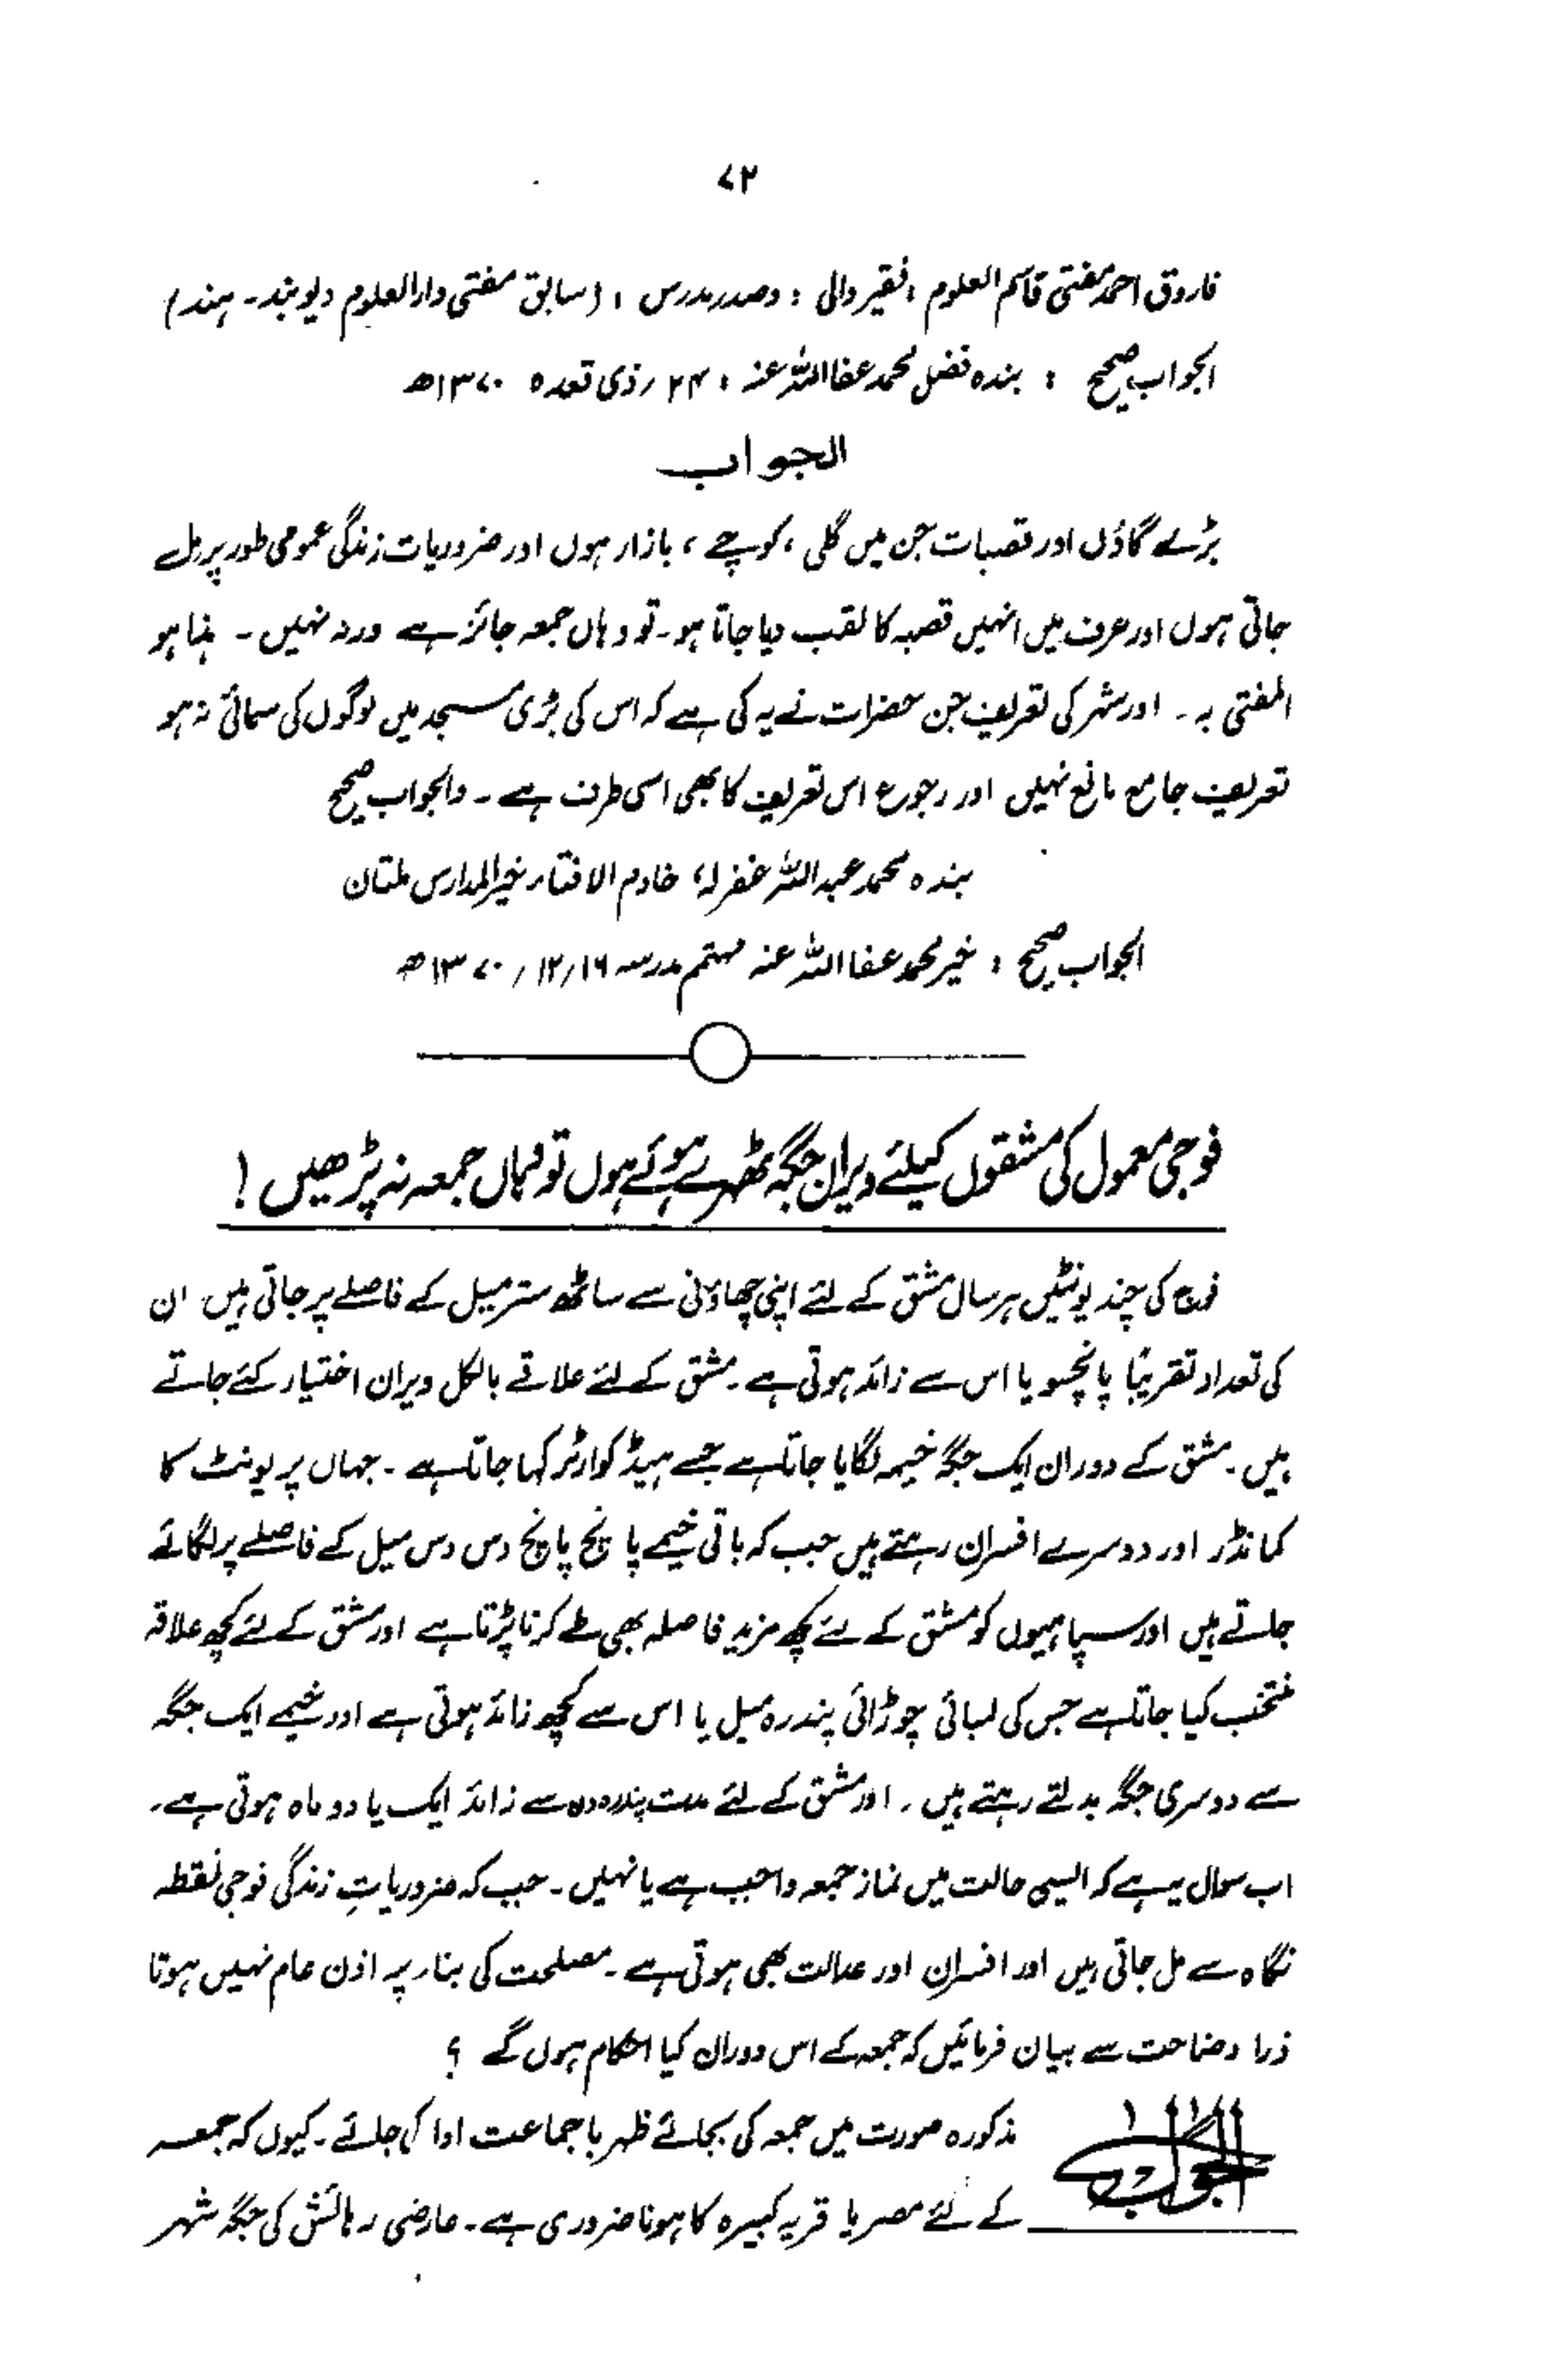 ۷۲
فاروق احمد مفتی قاسم العلوم ، فقیر والی ؛ وصدر مدرس ، (سابق مفتی دارالعلوم دیوبند۔ ہند)
الجواب صحیح ؛ بندہ فضل محمد عفا اللہ عنہ ؛ ۲۴ / ذی قعدہ ۱۳۷۰ھ
الجواب
بڑے گاؤں اور قصبات جن میں گلی ، کوچے ، بازار ہوں اور ضروریات زندگی عمومی طور پر مل
جاتی ہوں اور عرف میں انہیں قصبہ کا لقب دیا جاتا ہو۔ تو وہاں جمعہ جائز ہے ورنہ نہیں ۔ ہذا ہو
المفتی بہ ۔ اور شہر کی تعریف جن حضرات نے یہ کی ہے کہ اس کی بڑی مسجد میں لوگوں کی سمائی نہ ہو
تعریف جامع مانع نہیں اور رجوع اس تعریف کا بھی اسی طرف ہے ۔ والجواب صحیح
بندہ محمد عبد اللہ غفر لہٗ خادم الافتاء خیر المدارس ملتان
الجواب صحیح ؛ خیر محمد عفا اللہ عنہ مہتمم مدرسہ ۱۲/۱۶ / ۱۳۷۰ھ
فوجی معمول کی مشقوں کیلئے ویران جگہ ٹھہرے ہوئے ہوں تو وہاں جمعہ نہ پڑھیں !
فوج کی چند یونٹیں ہر سال مشق کے لئے اپنی چھاؤنی سے ساٹھ ستر میل کے فاصلے پر جاتی ہیں ان
کی تعداد تقریباً پانچسو یا اس سے زائد ہوتی ہے ۔ مشق کے لئے علاقے بالکل ویران اختیار کئے جاتے
ہیں ۔ مشق کے دوران ایک جگہ خیمہ لگایا جاتا ہے جسے ہیڈ کوارٹر کہا جاتا ہے ۔ جہاں پر یونٹ کا
کمانڈر اور دوسرے افسران رہتے ہیں جب کہ باقی خیمے پانچ پانچ دس دس میل کے فاصلے پر لگائے
جاتے ہیں اور سپاہیوں کو مشق کے لئے کچھ مزید فاصلہ بھی طے کرنا پڑتا ہے اور مشق کے لئے کچھ علاقہ
منتخب کیا جاتا ہے جس کی لمبائی چوڑائی پندرہ میل یا اس سے کچھ زائد ہوتی ہے اور خیمے ایک جگہ
سے دوسری جگہ بدلتے رہتے ہیں ۔ اور مشق کے لئے مدت پندرہ دن سے زائد ایک یا دو ماہ ہوتی ہے ۔
اب سوال یہ ہے کہ ایسی حالت میں نماز جمعہ واجب ہے یا نہیں ۔ جب کہ ضروریاتِ زندگی فوجی نقطہ
نگاہ سے مل جاتی ہیں اور افسران اور عدالت بھی ہوتی ہے ۔ مصلحت کی بناء پر اذن عام نہیں ہوتا
ذرا وضاحت سے بیان فرمائیں کہ جمعہ کے اس دوران کیا احکام ہوں گے ؟
الجواب مذکورہ صورت میں جمعہ کی بجائے ظہر با جماعت ادا کی جائے ۔ کیوں کہ جمعہ
کے لئے مصر یا قریہ کبیرہ کا ہونا ضروری ہے ۔ عارضی رہائش کی جگہ شہر